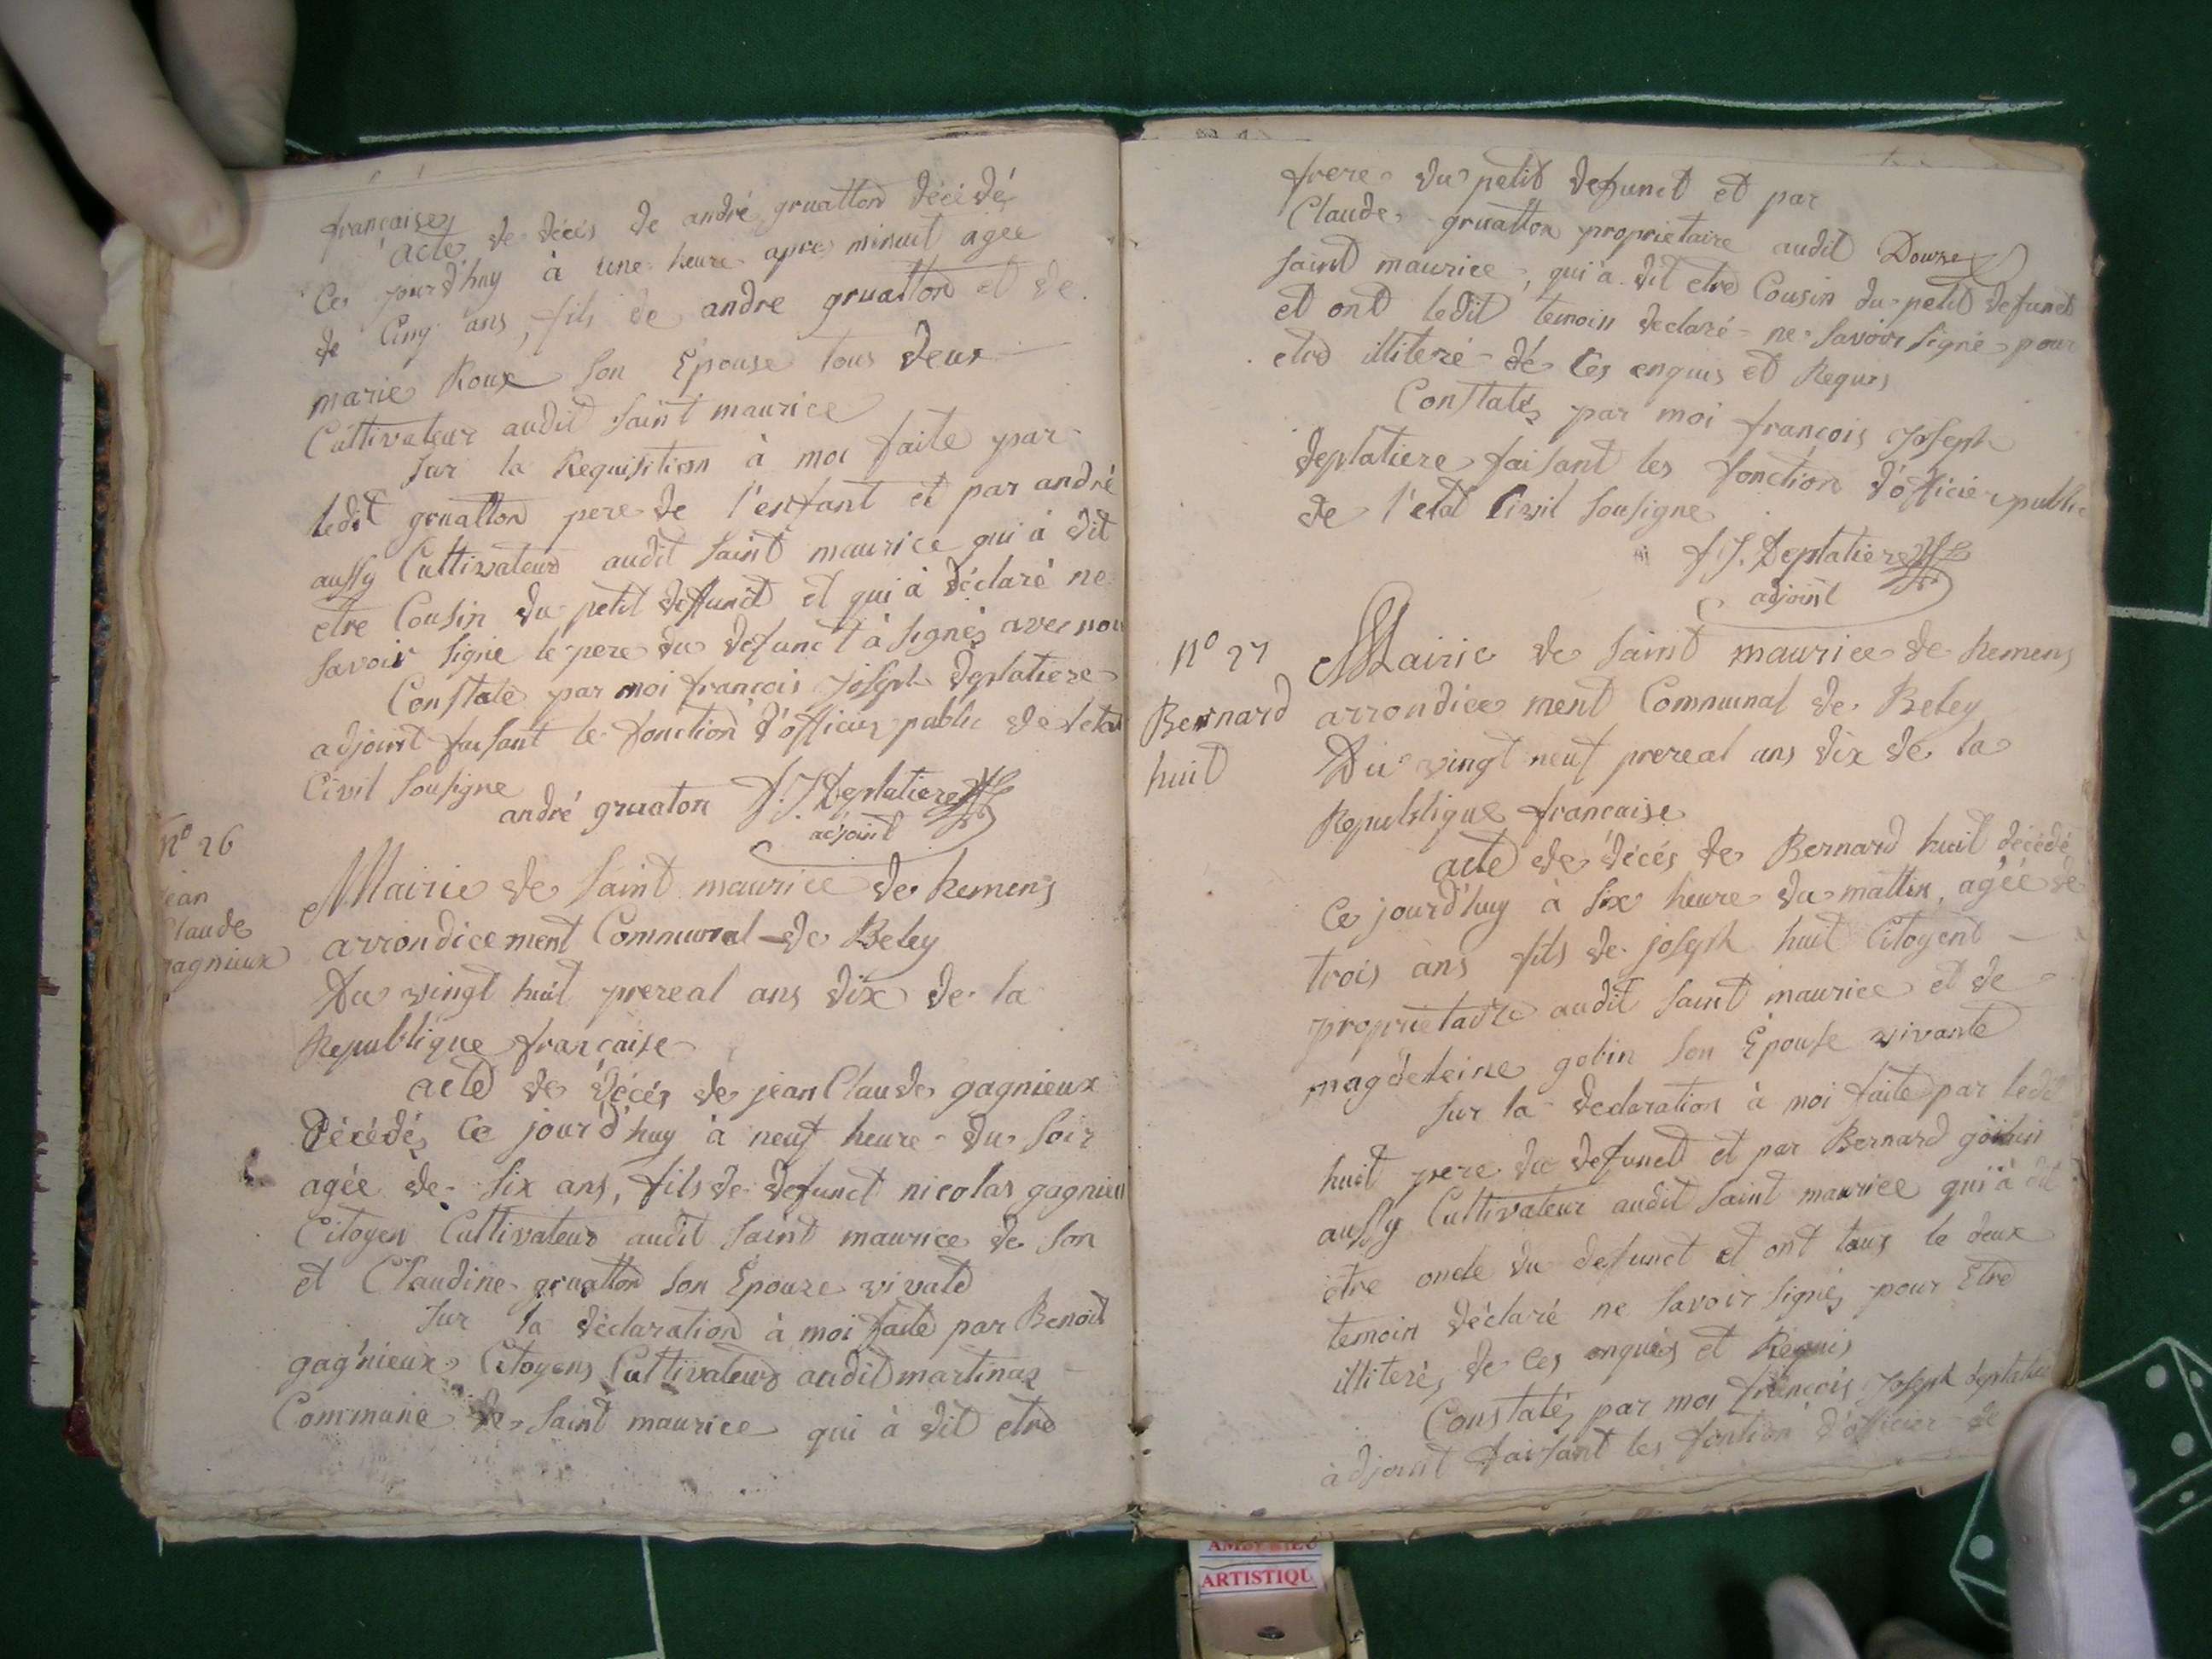 française
acte de décés de andré gruatton décédé
Ce jourd'huy à une heure apres minuit agée
de Cinq ans, fils de andre gruatton et de
marie Roux son Epouse tous deux
Cultivateur audit saint maurice
sur la Requisition à moi faite par
ledit gruatton pere de l'enfant et par andré
aussy Cultivateur audit saint maurice qui à dit
etre Cousin du petit deffunct et qui à déclaré ne
savoir signe le pere du defunct à signés avec nou
Constaté par moi françois joseph deplatiere
adjoint faisant le fonction d'officier public de letat
Civil sousigne
andré gruaton f. J. Deplatiere
adjoint
n° 26
jean
Claude
gagnieux
Mairie de saint maurice de Remens
arrondicement Communal de Beley
Du vingt huit prereal ans dix de la
Republique française
acte de décés de jean Claude gagnieux
Décédés Ce jourd'huy à neuf heure du soir
agée de six ans, fils de defunct nicolas gagnieu
Citoyen Cultivateur audit saint maurice de son
et Claudine gruatton son Epouze vivate
sur la déclaration à moi faite par Benoit
gagnieux Citoyens Cultivateurs audit martinaz
Commune de saint maurice qui à dit etre
frere du petit defunct et par
Claude gruatton proprietaire audit
saint maurice, qui à dit etre Cousin du petit defunct
et ont ledit temoin declaré ne savoir signé pour
etre illiteré de Ces enquis et Requis
Constatés par moi françois joseph
deplatiere faisant les fonction d'officier public
de l'etat Civil sousigne
f. J. Deplatiere
adjoint
n° 27
Bernard
huit
Mairie de saint maurice de Remens
arrondicement Communal de Beley
Du vingt neuf prereal ans dix de la
Republique française
acte de décés de Bernard huit décédé
Ce jourd'huy à six heure du mattin, agée de
trois ans fils de joseph huit Citoyent
proprietaire audit saint maurice et de
magdeleine gobin son Epouse vivante
sur la declaration à moi faite par ledit
huit pere du defunct et par Bernard
aussy Cultivateur audit saint maurice qui à dit
etre oncle du defunct et ont tous le deux
temoin déclaré ne savoir signés pour etre
illiterés de Ces enquis et Requis
Constatés par moi françois joseph deplatie
adjoint faisant les fontion d'officier de
AMBERIEU
ARTISTIQU